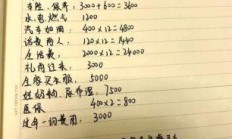 车险、保养：3000+600=3600
水电燃气 1200
汽车加油：400×12=4800
话费两人：120×12=1440
生活费：2000×12=24000
礼尚往来：3000
全家买衣服 5000
娃奶粉、尿布湿：7500
医保 400×2=800
过年一切费用：3000